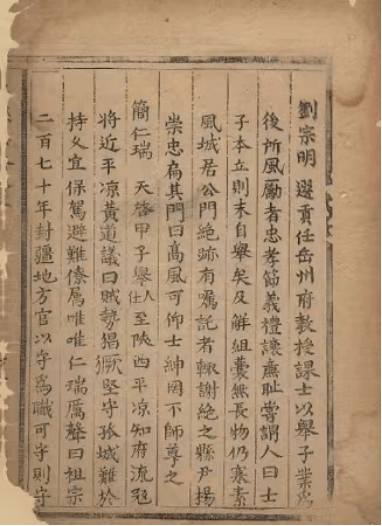 劉宗明 選貢任岳州府教授課士以舉子業為
後所風厲者忠孝節義禮讓廉恥嘗謂人曰士
子本立則末自舉矣及解組囊無長物仍寒素
風城居公門絕跡有囑託者輙謝絕之縣尹揚
崇忠扁其門曰高風可仰士紳罔不師尊之
簡仁瑞 天啓甲子舉人仕至陝西平凉知府流寇
將近平凉黃道議曰賊勢猖獗堅守孤城難於
持久宜保駕避難僚屬唯唯仁瑞厲聲曰祖宗
二百七十年封疆地方官以守為職可守則守